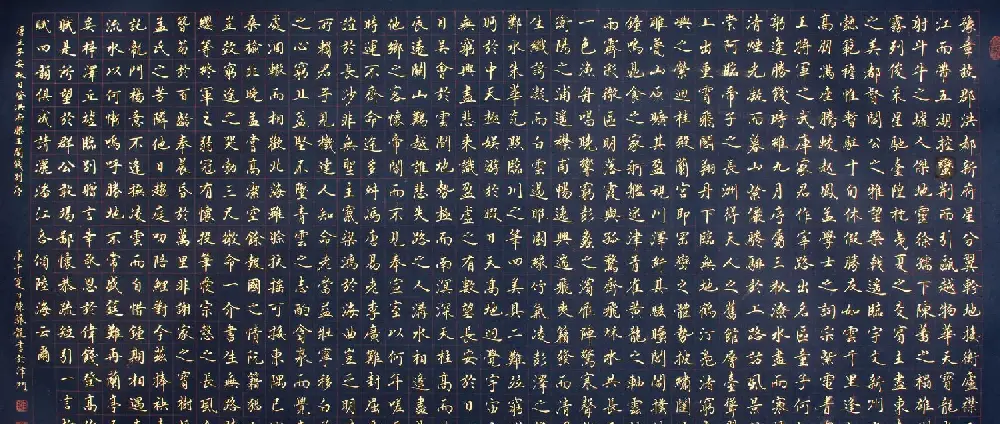 豫章故郡洪都新府星分翼軫地接衡廬襟三
江而帶五湖控蠻荊而引甌越物華天寶龍光
射斗牛之墟人傑地靈徐孺下陳蕃之榻雄州
霧列俊采星馳臺隍枕夷夏之交賓主盡東南
之美都督閻公之雅望棨戟遙臨宇文新州之
懿範襜帷暫駐十旬休假勝友如雲千里逢迎
高朋滿座騰蛟起鳳孟學士之詞宗紫電青霜
王將軍之武庫家君作宰路出名區童子何知
躬逢勝餞時維九月序屬三秋潦水盡而寒潭
清煙光凝而暮山紫儼驂騑於上路訪風景於
崇阿臨帝子之長洲得天人之舊館層巒聳翠
上出重霄飛閣翔丹下臨無地鶴汀鳧渚窮島
嶼之縈迴桂殿蘭宮即岡巒之體勢披繡闥俯
雕甍山原曠其盈視川澤紆其駭矚閭閻撲地
鐘鳴鼎食之家舸艦迷津青雀黃龍之舳雲銷
雨霽彩徹區明落霞與孤鶩齊飛秋水共長天
一色漁舟唱晚響窮彭蠡之濱雁陣驚寒聲斷
衡陽之浦遙襟甫暢逸興遄飛爽籟發而清風
生纖歌凝而白雲遏睢園綠竹氣凌彭澤之樽
鄴水朱華光照臨川之筆四美具二難并窮睇
眄於中天極娛游於暇日天高地迥覺宇宙之
無窮興盡悲來識盈虛之有數望長安於日下
目吳會於雲間地勢極而南溟深天柱高而北
辰遠關山難越誰悲失路之人溝水相逢盡是
他鄉之客懷帝閽而不見奉宣室以何年嗟乎
時運不齊命途多舛馮唐易老李廣難封屈賈
誼於長沙非無聖主竄梁鴻於海曲豈乏明時
所賴君子見機達人知命老當益壯寧移白首
之心窮且益堅不墜青雲之志酌貪泉而覺爽
處涸轍而相歡北海雖賒扶搖可接東隅已逝
桑榆非晚孟嘗高潔空餘報國之情阮籍猖狂
豈效窮途之哭勃三尺微命一介書生無路請
纓等終軍之弱冠有懷投筆愛宗愨之長風舍
簪笏於百齡奉晨昏於萬里非謝家之寶樹接
孟氏之芳鄰他日趨庭叨陪鯉對今茲捧袂喜
託龍門楊意不逢撫凌雲而自惜鍾期相遇奏
流水以何慚嗚呼勝地不常盛筵難再蘭亭已
矣梓澤丘墟臨別贈言幸承恩於偉餞登高作
賦是所望於群公敢竭鄙懷恭疏短引一言均
賦四韻俱成請灑潘江各傾陸海云爾